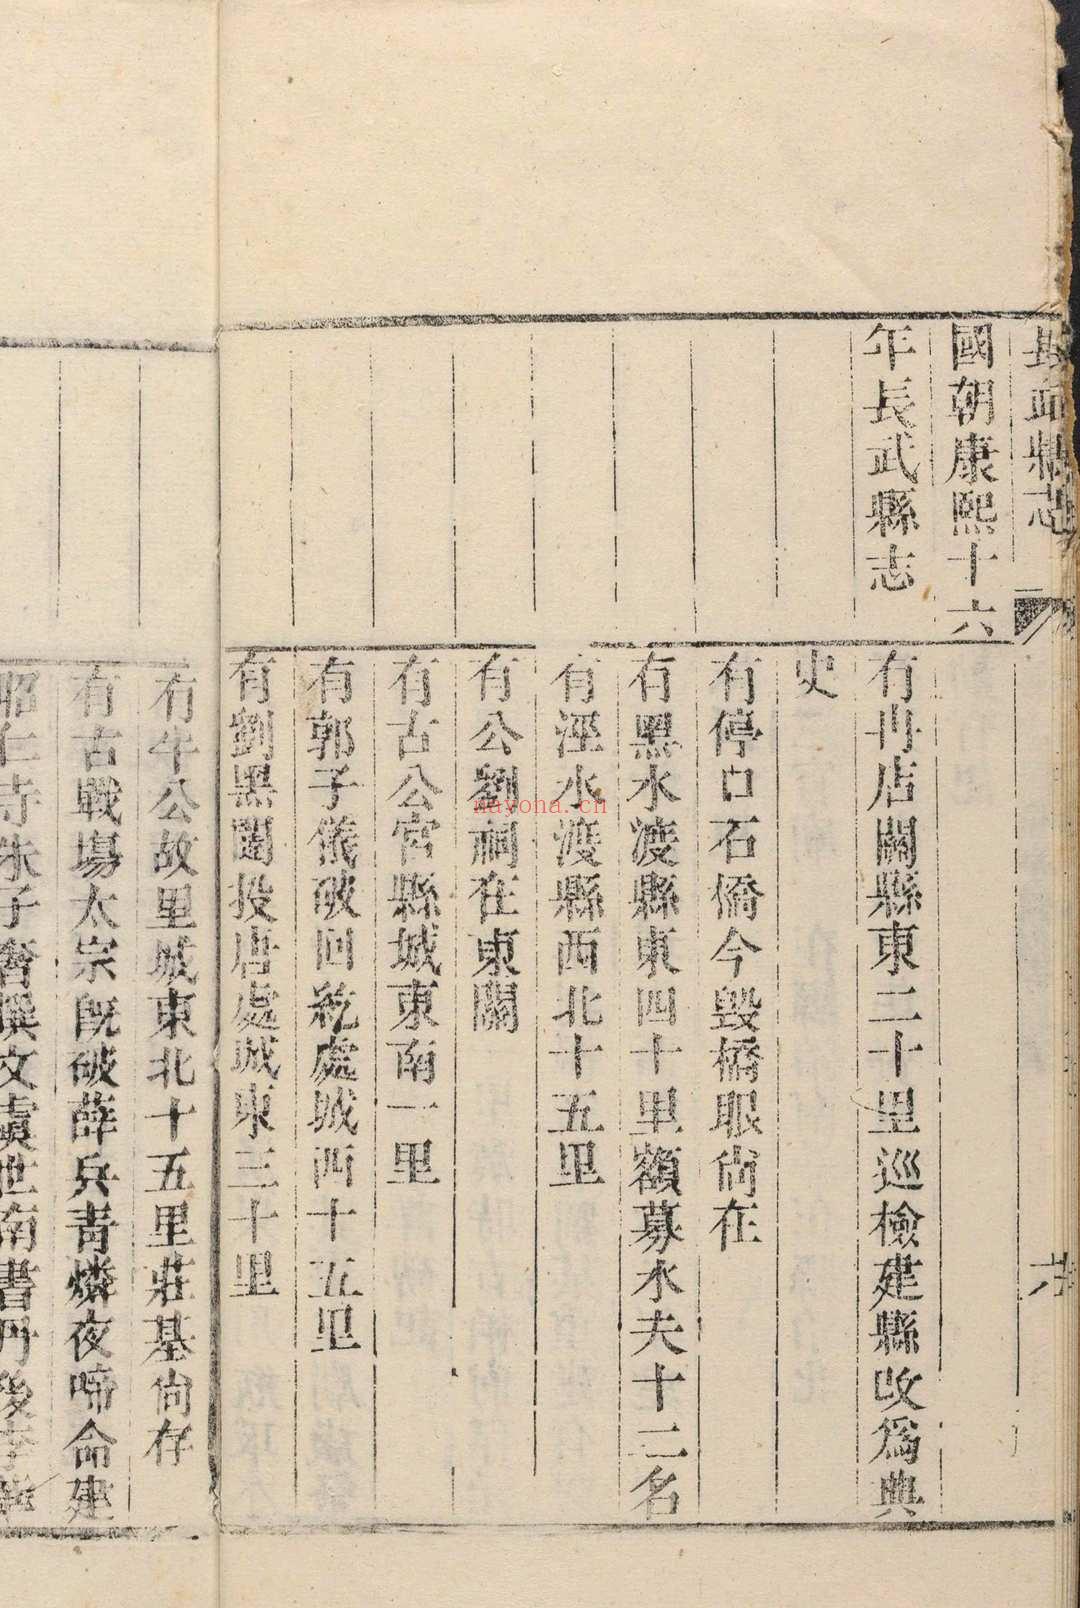 長武縣志
六
國朝康熙十六
年長武縣志
有冉店關縣東二十里巡檢建縣改爲典
史
有停口石橋今毀橋眼尚在
有黑水渡縣東四十里額募水夫十二名
有涇水渡縣西北十五里
有公劉祠在東關
有古公宮縣城東南一里
有郭子儀破回紇處城西十五里
有劉黑闥投唐處城東三十里
有牛公故里城東北十五里莊基尙存
有古戰塲太宗旣破薛兵靑燐夜啼命建
昭仁寺朱子奢撰文虞世南書丹後李
nayona.cn